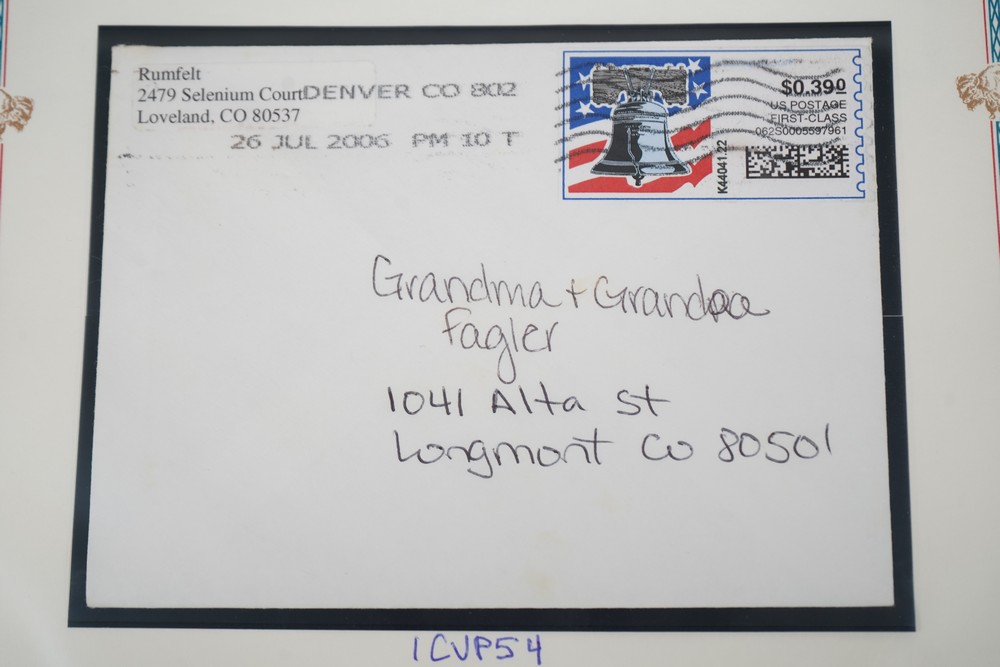 Rumfelt
2479 Selenium Court
Loveland, CO 80537
DENVER CO 802
26 JUL 2006 PM 10 T
$0.390
US POSTAGE
FIRST-CLASS
062S0005597961
K44041.22
Grandma + Grandpa
Fagler
1041 Alta St
Longmont Co 80501
1CVP54